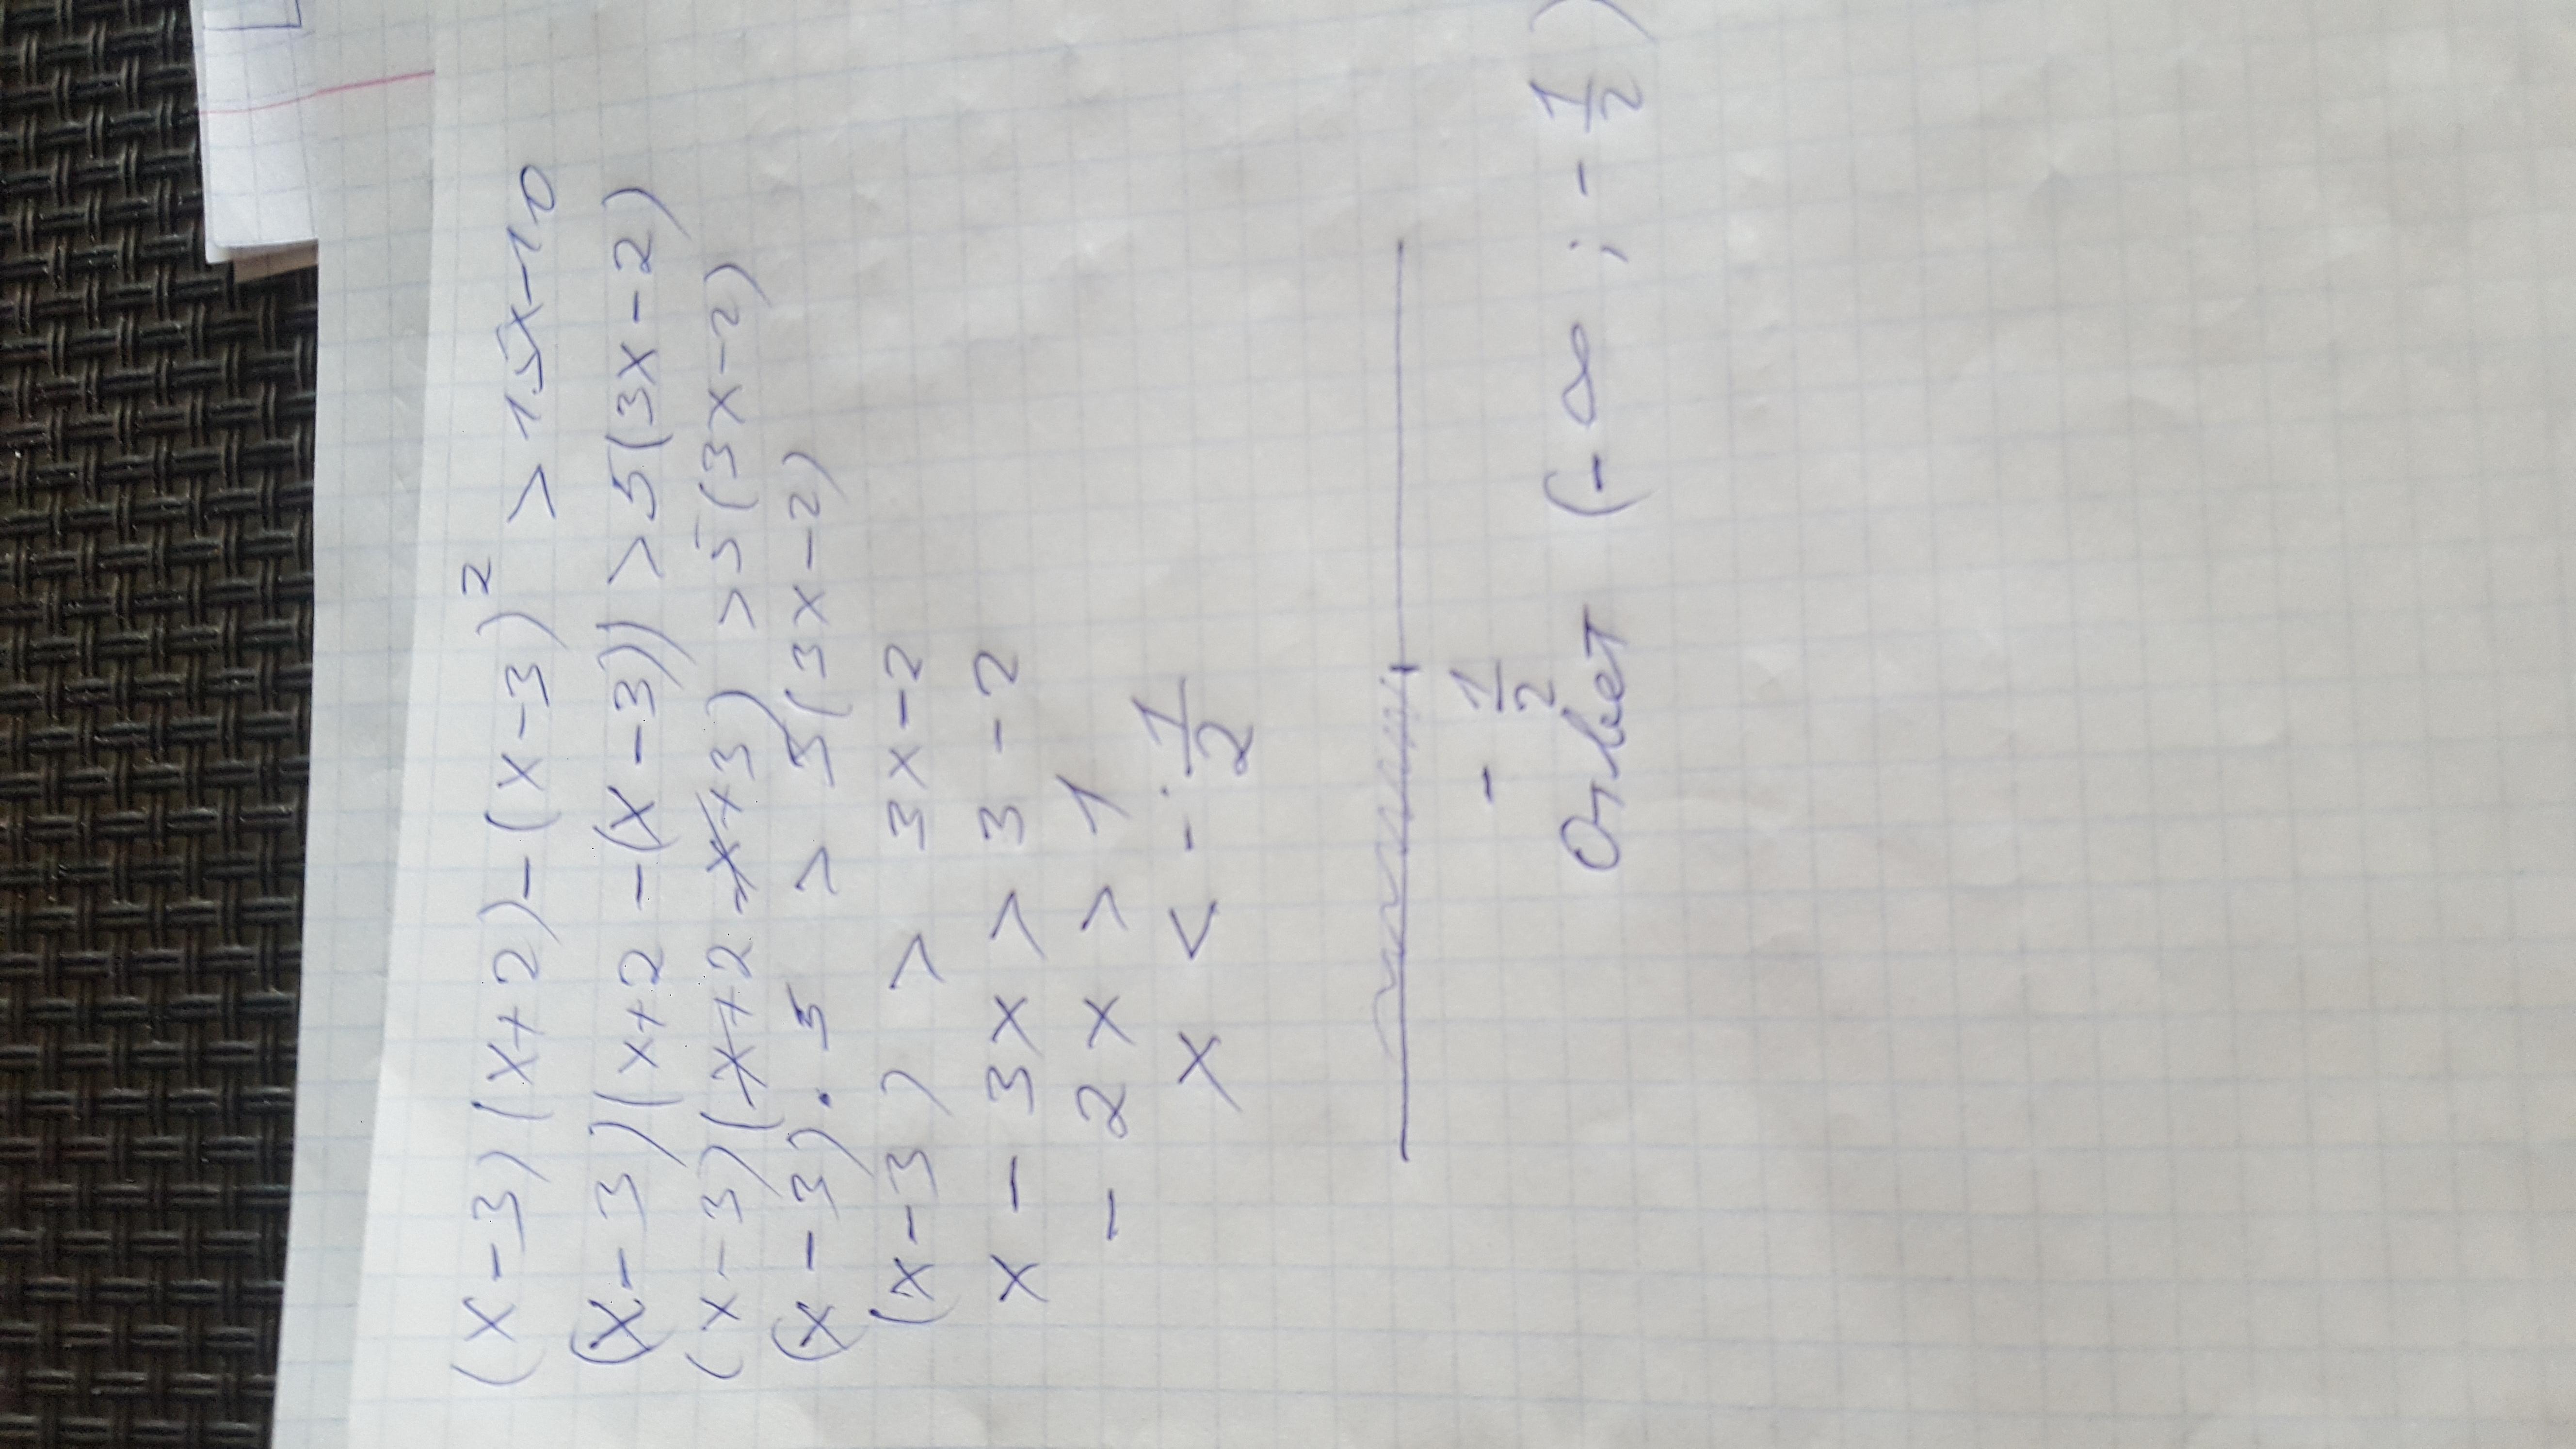 (x-3)(x+2)-(x-3)² >15x-10
(x-3)(x+2-(x-3))>5(3x-2)
(x-3)(x+2-x+3)>5(3x-2)
(x-3)·5 > 5(3x-2)
(x-3) > 3x-2
x-3x > 3-2
-2x > 1
x < -1/2
-1/2
Ответ (-∞; -1/2)